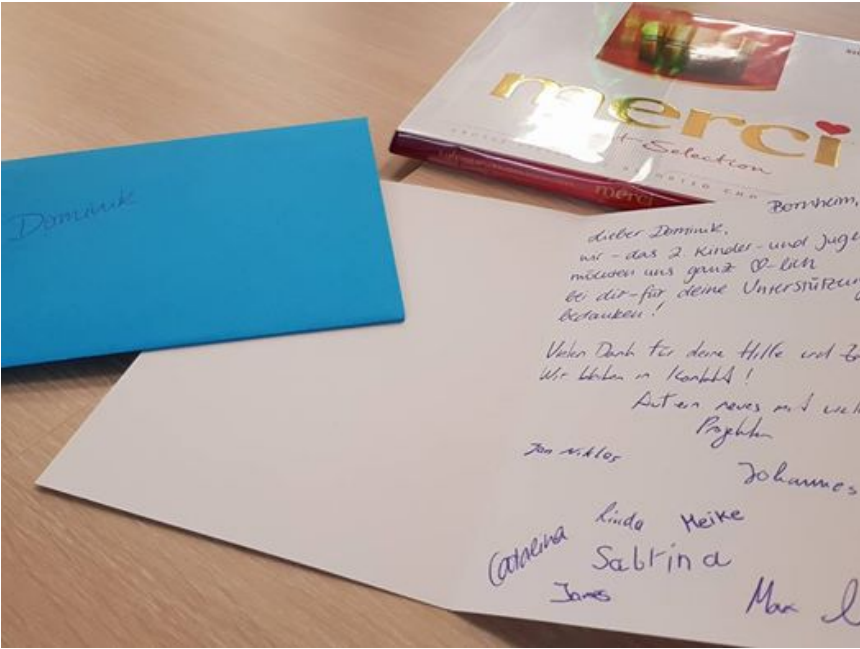 Dominik
merci
Selection
merci
Bornheim,
Lieber Dominik,
wir - das 2. Kinder - und Juge
möchten uns ganz ♡-lich
bei dir - für deine Unterstützun
bedanken!
Vielen Dank für deine Hilfe und
Wir bleiben in Kontakt!
Auf ein neues mit
Projekten
Jan Niklas
Johannes
Linda Meike
Catarina
Sabrina
James
Max